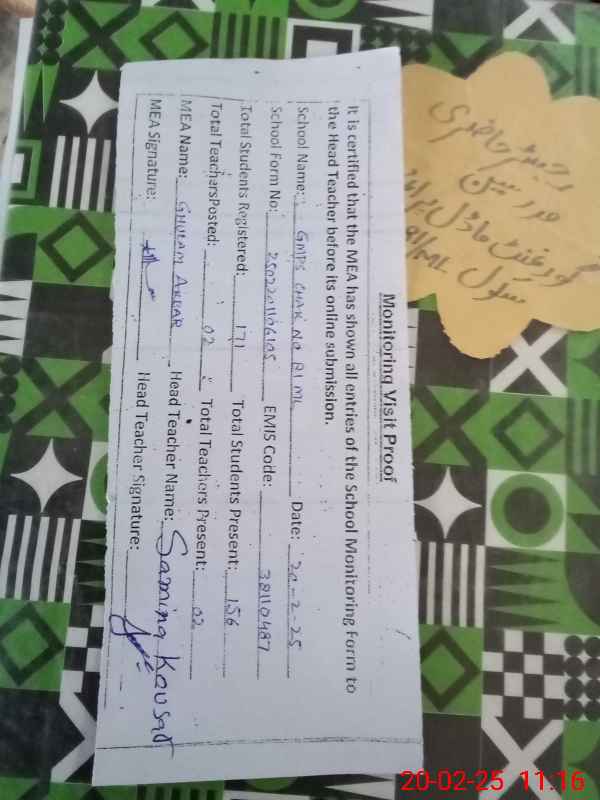 Monitoring Visit Proof
It is certified that the MEA has shown all entries of the School Monitoring Form to
the Head Teacher before its online submission.
School Name: GMPS CHAK NO 91 ML Date: 20-2-25
School Form No: EMIS Code: 38110487
Total Students Registered: 171 Total Students Present: 156
Total Teachers Posted: 02 Total Teachers Present: 02
MEA Name: GHULAM AKBAR Head Teacher Name: Samina Kausar
MEA Signature: Head Teacher Signature:
رجسٹر حاضری
مدرسین
گورنمنٹ ماڈل پرائمری
سکول 91/ML
20-02-25 11:16